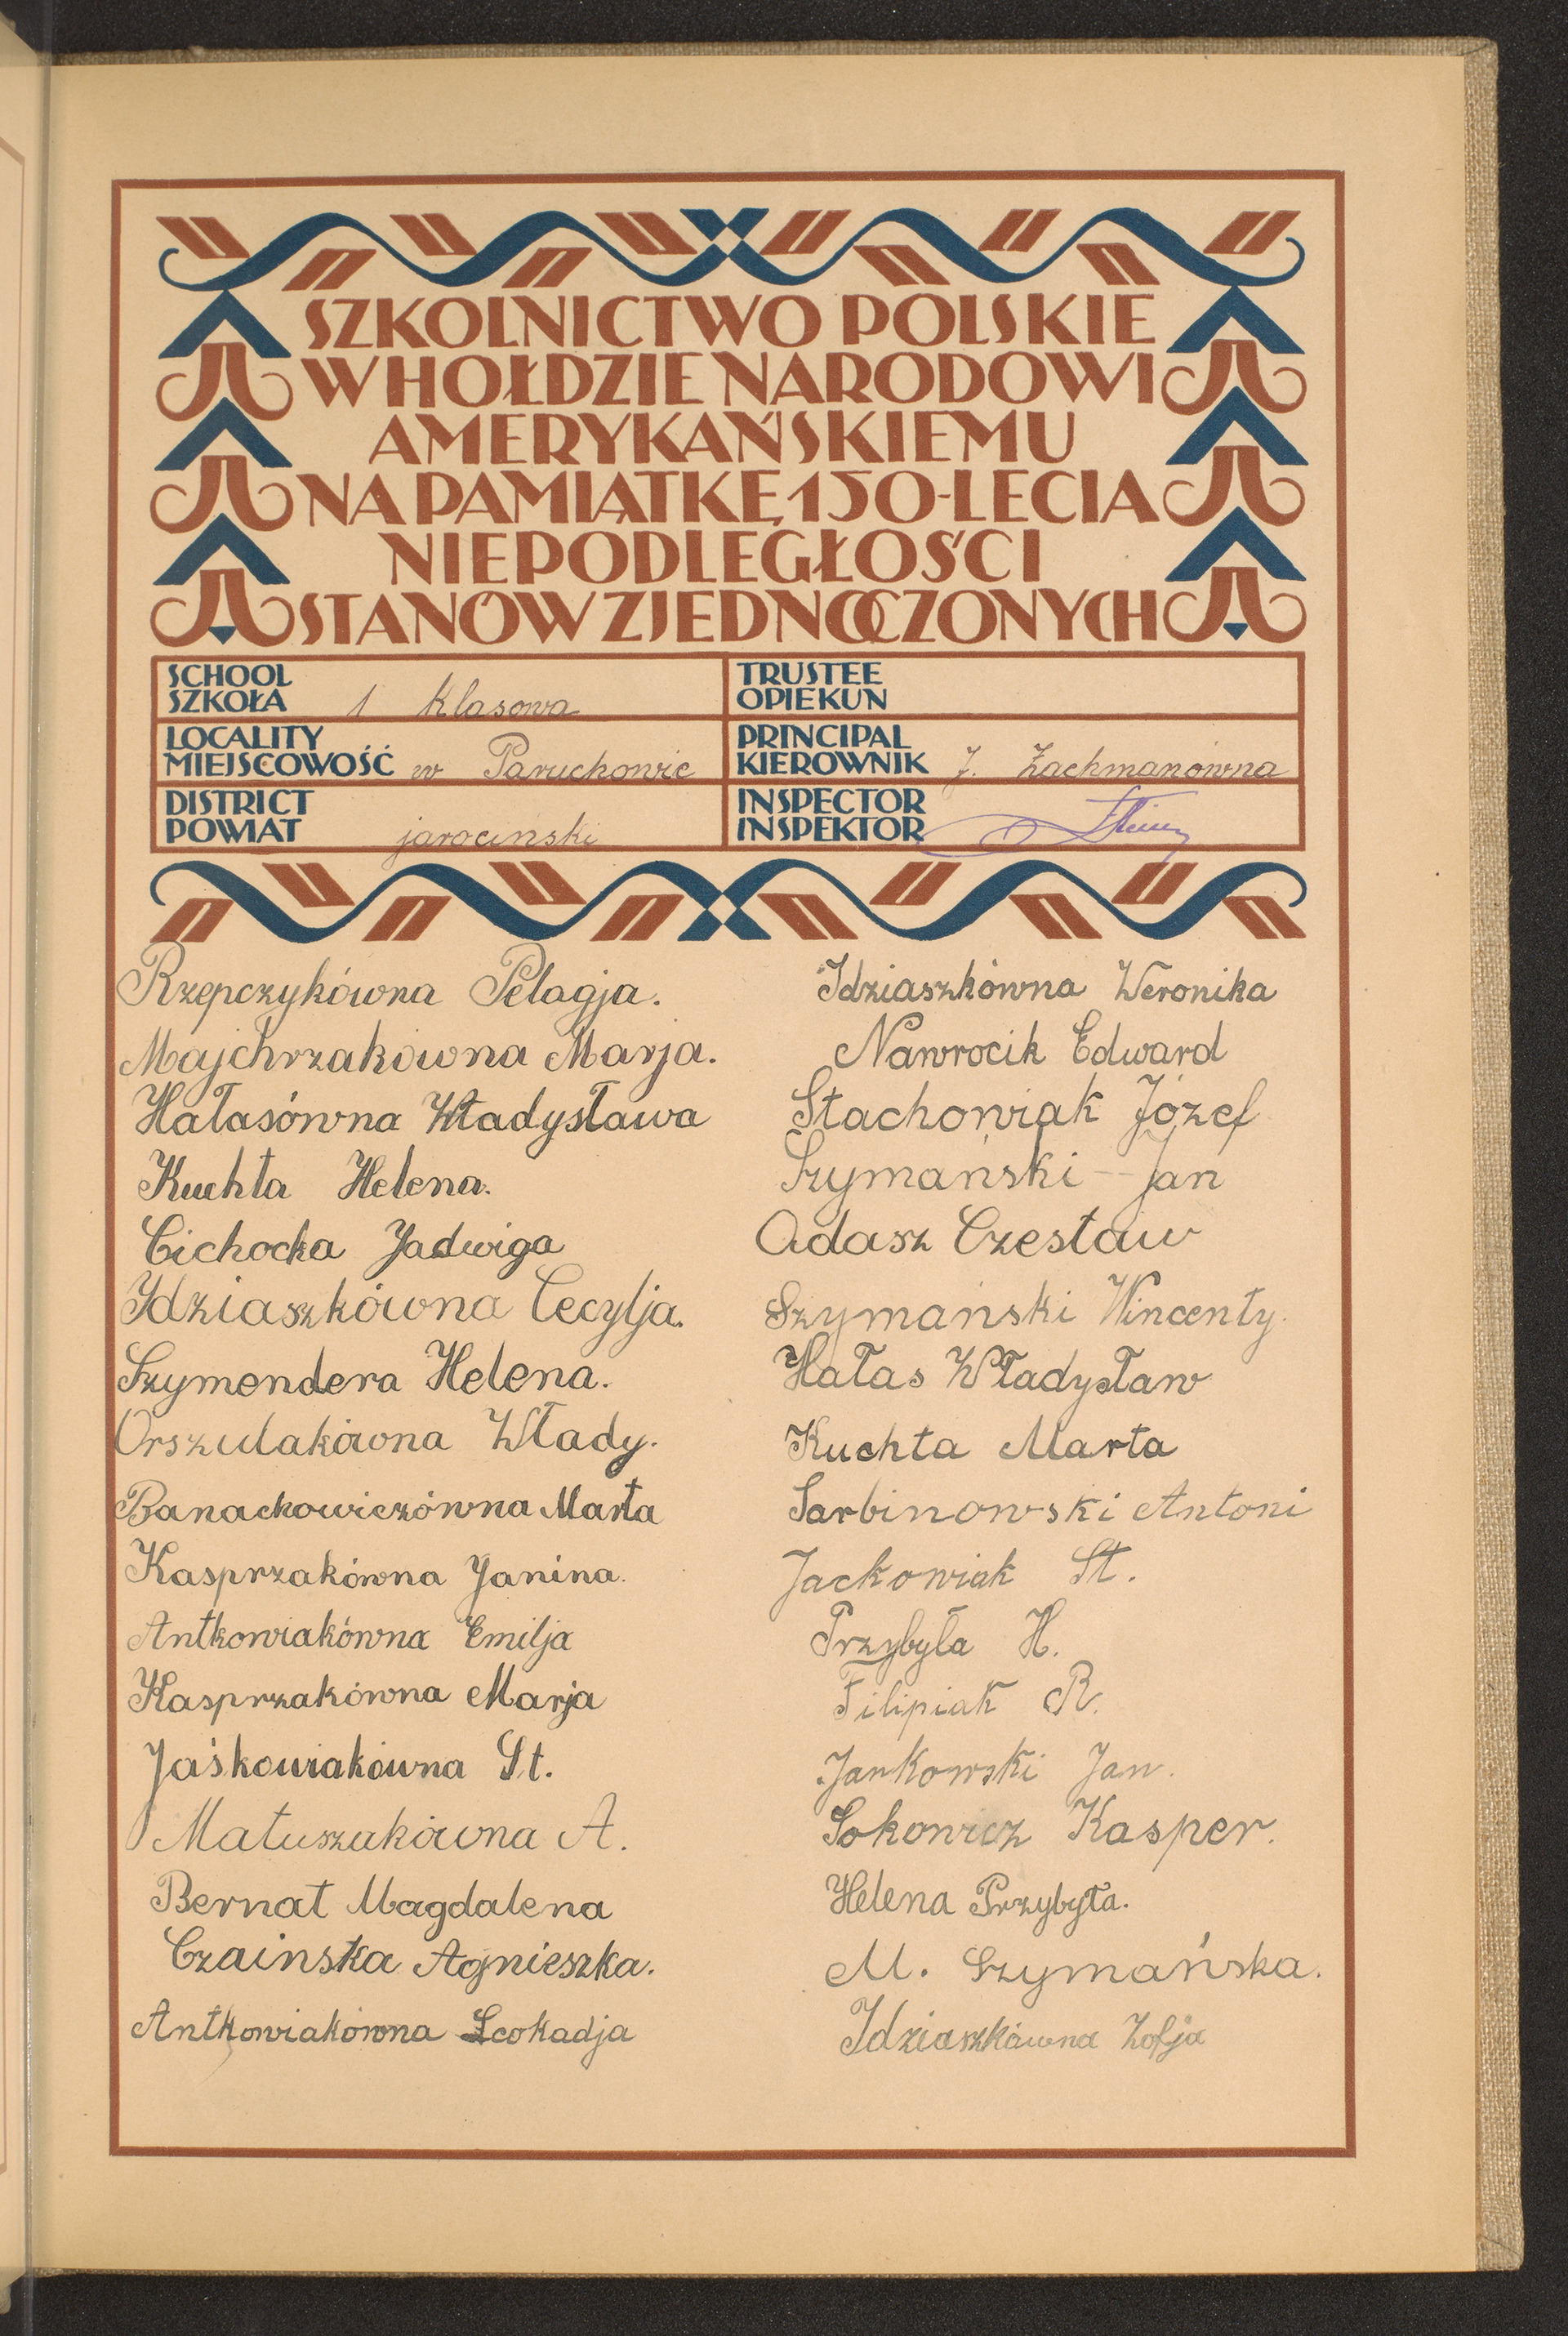 SZKOLNICTWO POLSKIE
W HOŁDZIE NARODOWI
AMERYKAŃSKIEMU
NA PAMIĄTKĘ 150-LECIA
NIEPODLEGŁOŚCI
STANÓW ZJEDNOCZONYCH
SCHOOL
SZKOŁA 1 Klasowa
LOCALITY
MIEJSCOWOŚĆ w Paruchowie
DISTRICT
POWIAT jarociński
TRUSTEE
OPIEKUN
PRINCIPAL
KIEROWNIK J. Zachmanówna
INSPECTOR
INSPEKTOR
Rzepczykówna Pelagja.
Majchrzakówna Marja.
Hałasówna Władysława
Kuchta Helena.
Cichocka Jadwiga
Idziaszkówna Cecylja.
Szymendera Helena.
Orszulakówna Włady.
Banachowiczówna Marta
Kasprzakówna Janina.
Antkowiakówna Emilja
Kasprzakówna Marja
Jaśkowiakówna St.
Matuszakówna A.
Bernat Magdalena
Czainska Agnieszka.
Antkowiakówna Leokadja
Idziaszkówna Weronika
Nawrocik Edward
Stachowiak Józef
Szymański - Jan
Adasz Czesław
Szymański Wincenty.
Hałas Władysław
Kuchta Marta
Sarbinowski Antoni
Jackowiak St.
Przybyła H.
Filipiak R.
Jankowski Jan.
Sokowicz Kasper.
Helena Przybyła.
M. Szymańska.
Idziaszkówna Zofja